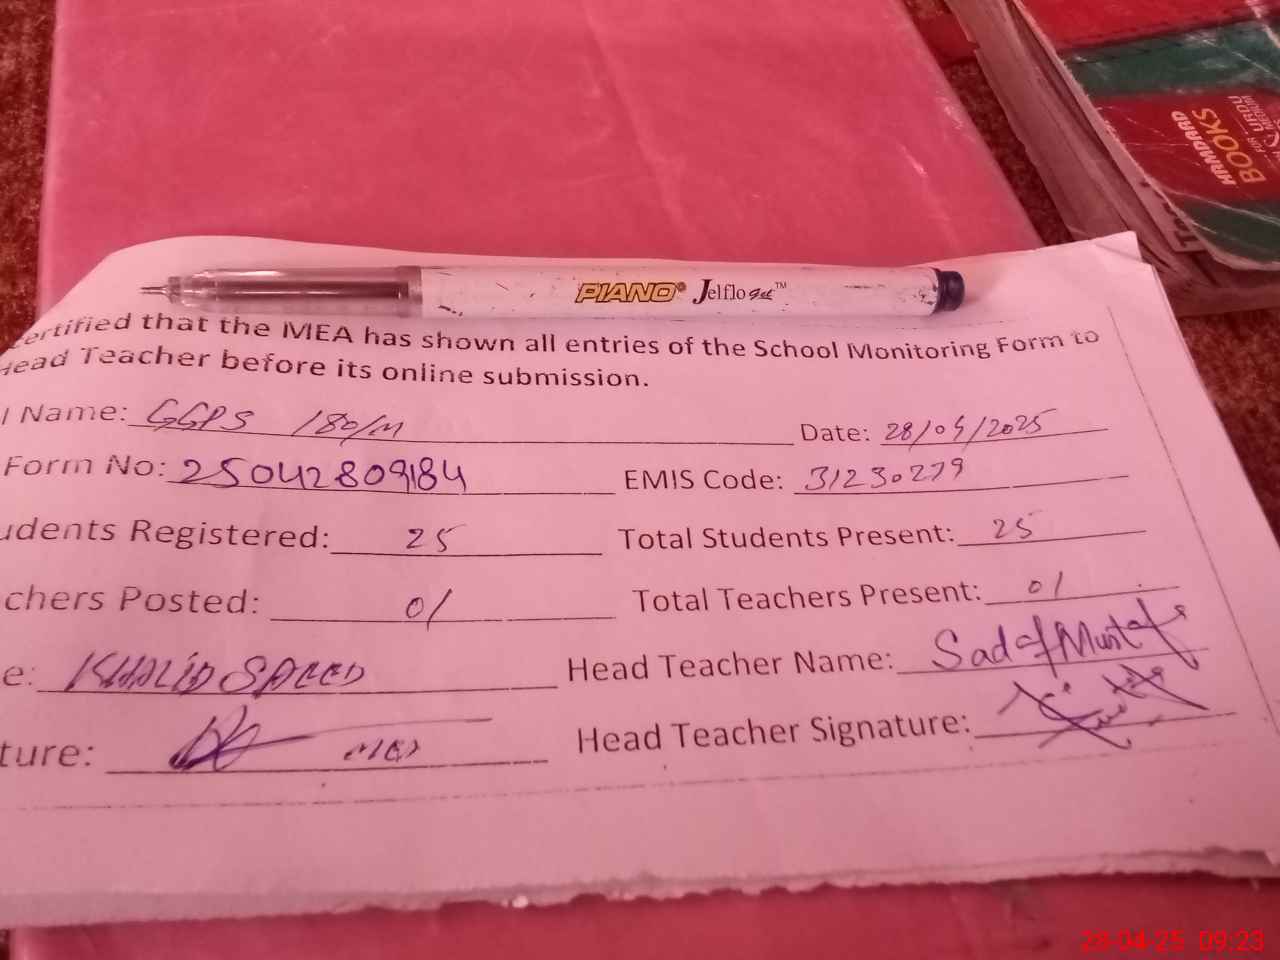 PIANO® Jelflo gel™
HAMDARD
BOOKS
FOR URDU
ertified that the MEA has shown all entries of the School Monitoring Form to
Head Teacher before its online submission.
l Name: GGPS 180/M Date: 28/04/2025
Form No: 25042809184 EMIS Code: 31230279
udents Registered: 25 Total Students Present: 25
chers Posted: 01 Total Teachers Present: 01
e: KHALID SAEED Head Teacher Name: Sadaf Mustafa
ture: MEA Head Teacher Signature:
28-04-25 09:23